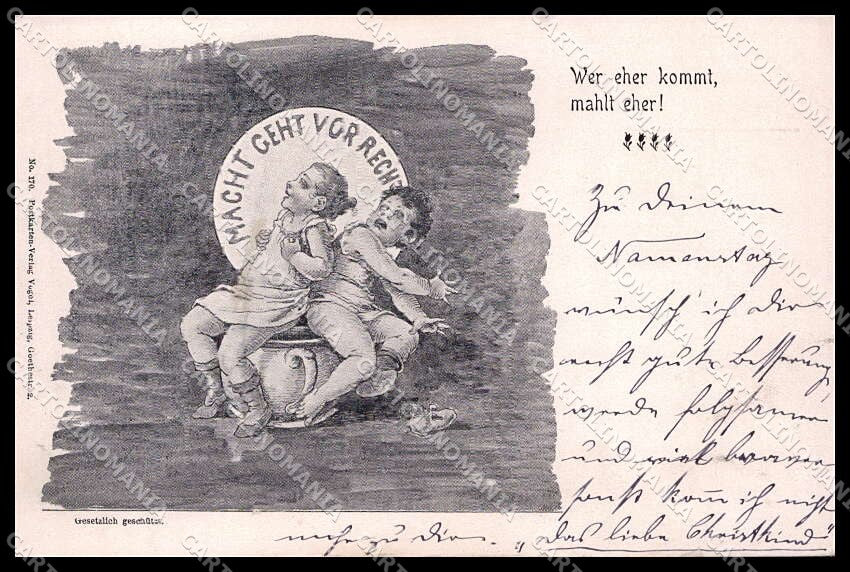 MACHT GEHT VOR RECHT
Wer eher kommt,
mahlt eher!
Zu Deinem
Namenstag
wünsch' ich Dir
recht gute Besserung,
werde folgsamer
und viel braver
sonst kom̅ ich nicht
mehr zu Dir. „das liebe Christkind"
No. 170. Postkarten-Verlag Vogel, Leipzig, Goethestr. 2.
Gesetzlich geschützt.
CARTOLINOMANIA